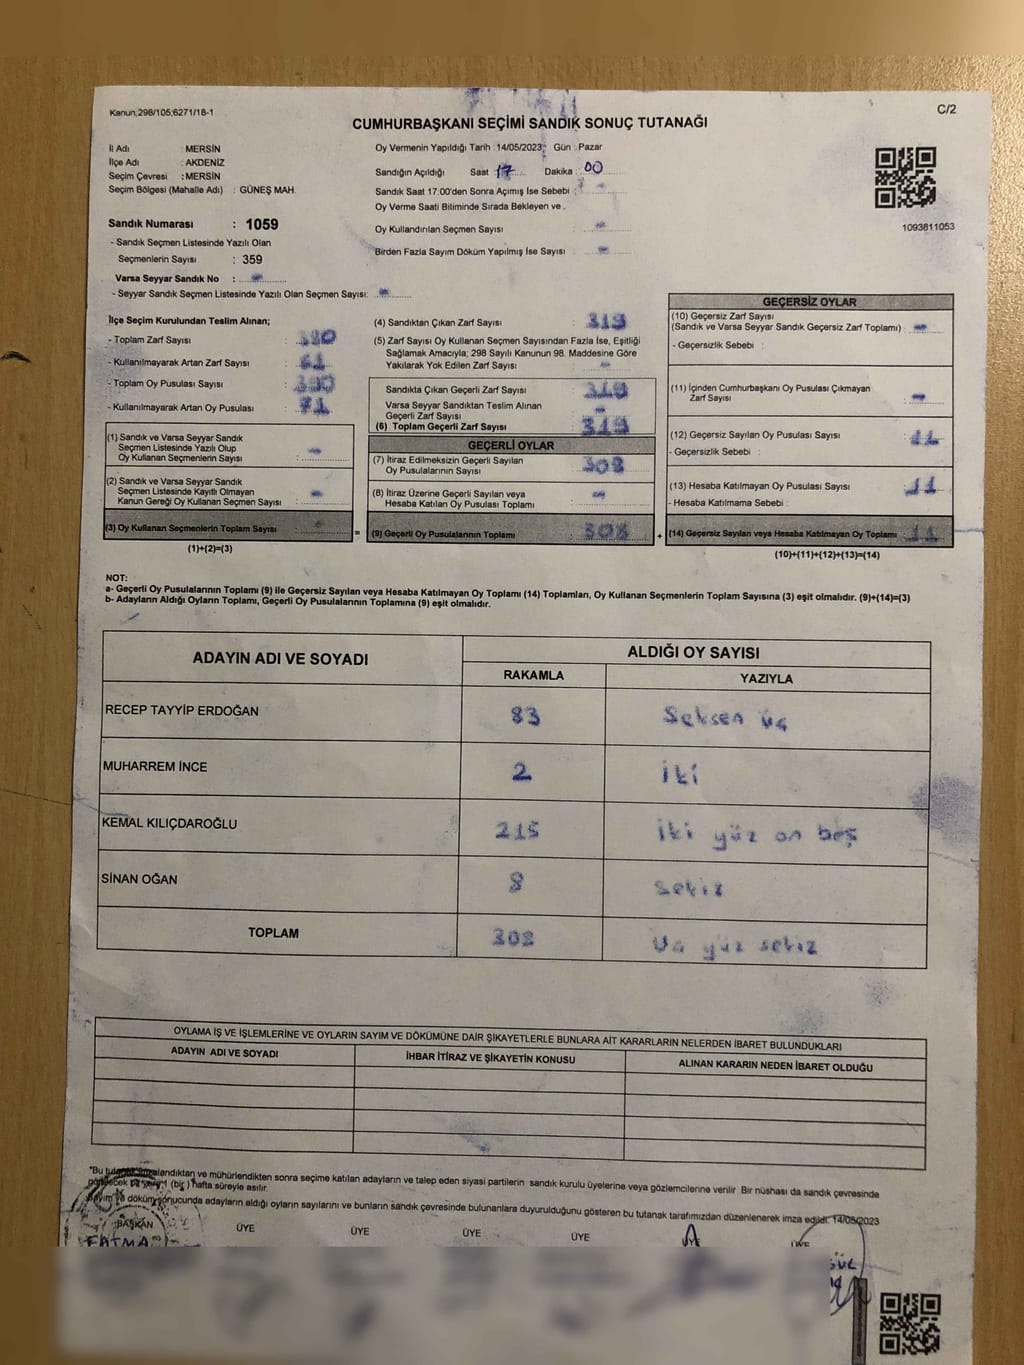 Kanun:298/105;6271/18-1
C/2
CUMHURBAŞKANI SEÇİMİ SANDIK SONUÇ TUTANAĞI
İl Adı : MERSİN
İlçe Adı : AKDENİZ
Seçim Çevresi : MERSİN
Seçim Bölgesi (Mahalle Adı) : GÜNEŞ MAH.
Sandık Numarası : 1059
- Sandık Seçmen Listesinde Yazılı Olan
Seçmenlerin Sayısı : 359
Varsa Seyyar Sandık No : -
- Seyyar Sandık Seçmen Listesinde Yazılı Olan Seçmen Sayısı: -
Oy Vermenin Yapıldığı Tarih :14/05/2023; Gün : Pazar
Sandığın Açıldığı Saat : 17 Dakika : 00
Sandık Saat 17:00'den Sonra Açımış İse Sebebi :
Oy Verme Saati Bitiminde Sırada Bekleyen ve
Oy Kullandırılan Seçmen Sayısı : -
Birden Fazla Sayım Döküm Yapılmış İse Sayısı : -
1093811053
İlçe Seçim Kurulundan Teslim Alınan;
- Toplam Zarf Sayısı : 380
- Kullanılmayarak Artan Zarf Sayısı : 61
- Toplam Oy Pusulası Sayısı :
- Kullanılmayarak Artan Oy Pusulası : 71
(1) Sandık ve Varsa Seyyar Sandık
Seçmen Listesinde Yazılı Olup
Oy Kullanan Seçmenlerin Sayısı : -
(2) Sandık ve Varsa Seyyar Sandık
Seçmen Listesinde Kayıtlı Olmayan
Kanun Gereği Oy Kullanan Seçmen Sayısı : -
(3) Oy Kullanan Seçmenlerin Toplam Sayısı :
(1)+(2)=(3)
=
(4) Sandıktan Çıkan Zarf Sayısı : 319
(5) Zarf Sayısı Oy Kullanan Seçmen Sayısından Fazla İse, Eşitliği
Sağlamak Amacıyla; 298 Sayılı Kanunun 98. Maddesine Göre
Yakılarak Yok Edilen Zarf Sayısı : -
Sandıkta Çıkan Geçerli Zarf Sayısı : 319
Varsa Seyyar Sandıktan Teslim Alınan
Geçerli Zarf Sayısı : -
(6) Toplam Geçerli Zarf Sayısı : 319
GEÇERLİ OYLAR
(7) İtiraz Edilmeksizin Geçerli Sayılan
Oy Pusulalarının Sayısı : 308
(8) İtiraz Üzerine Geçerli Sayılan veya
Hesaba Katılan Oy Pusulası Toplamı : -
(9) Geçerli Oy Pusulalarının Toplamı : 308
+
GEÇERSİZ OYLAR
(10) Geçersiz Zarf Sayısı
(Sandık ve Varsa Seyyar Sandık Geçersiz Zarf Toplamı) : -
- Geçersizlik Sebebi :
(11) İçinden Cumhurbaşkanı Oy Pusulası Çıkmayan
Zarf Sayısı : -
(12) Geçersiz Sayılan Oy Pusulası Sayısı : 11
- Geçersizlik Sebebi :
(13) Hesaba Katılmayan Oy Pusulası Sayısı : 11
- Hesaba Katılmama Sebebi :
(14) Geçersiz Sayılan veya Hesaba Katılmayan Oy Toplamı : 11
(10)+(11)+(12)+(13)=(14)
NOT:
a- Geçerli Oy Pusulalarının Toplamı (9) ile Geçersiz Sayılan veya Hesaba Katılmayan Oy Toplamı (14) Toplamları, Oy Kullanan Seçmenlerin Toplam Sayısına (3) eşit olmalıdır. (9)+(14)=(3)
b- Adayların Aldığı Oyların Toplamı, Geçerli Oy Pusulalarının Toplamına (9) eşit olmalıdır.
ADAYIN ADI VE SOYADI
ALDIĞI OY SAYISI
RAKAMLA YAZIYLA
RECEP TAYYİP ERDOĞAN 83 Seksen üç
MUHARREM İNCE 2 iki
KEMAL KILIÇDAROĞLU 215 iki yüz on beş
SİNAN OĞAN 8 sekiz
TOPLAM 308 üç yüz sekiz
OYLAMA İŞ VE İŞLEMLERİNE VE OYLARIN SAYIM VE DÖKÜMÜNE DAİR ŞİKAYETLERLE BUNLARA AİT KARARLARIN NELERDEN İBARET BULUNDUKLARI
ADAYIN ADI VE SOYADI İHBAR İTİRAZ VE ŞİKAYETİN KONUSU ALINAN KARARIN NEDEN İBARET OLDUĞU
"Bu ve mühürlendikten sonra seçime katılan adayların ve talep eden siyasi partilerin sandık kurulu üyelerine veya gözlemcilerine verilir. Bir nüshası da sandık çevresinde
(bir) hafta süreyle asılır.
döküm sonucunda adayların aldığı oyların sayılarını ve bunların sandık çevresinde bulunanlara duyurulduğunu gösteren bu tutanak tarafımızdan düzenlenerek imza edildi. 14/05/2023
BAŞKAN ÜYE ÜYE ÜYE ÜYE ÜYE ÜYE
FATMA